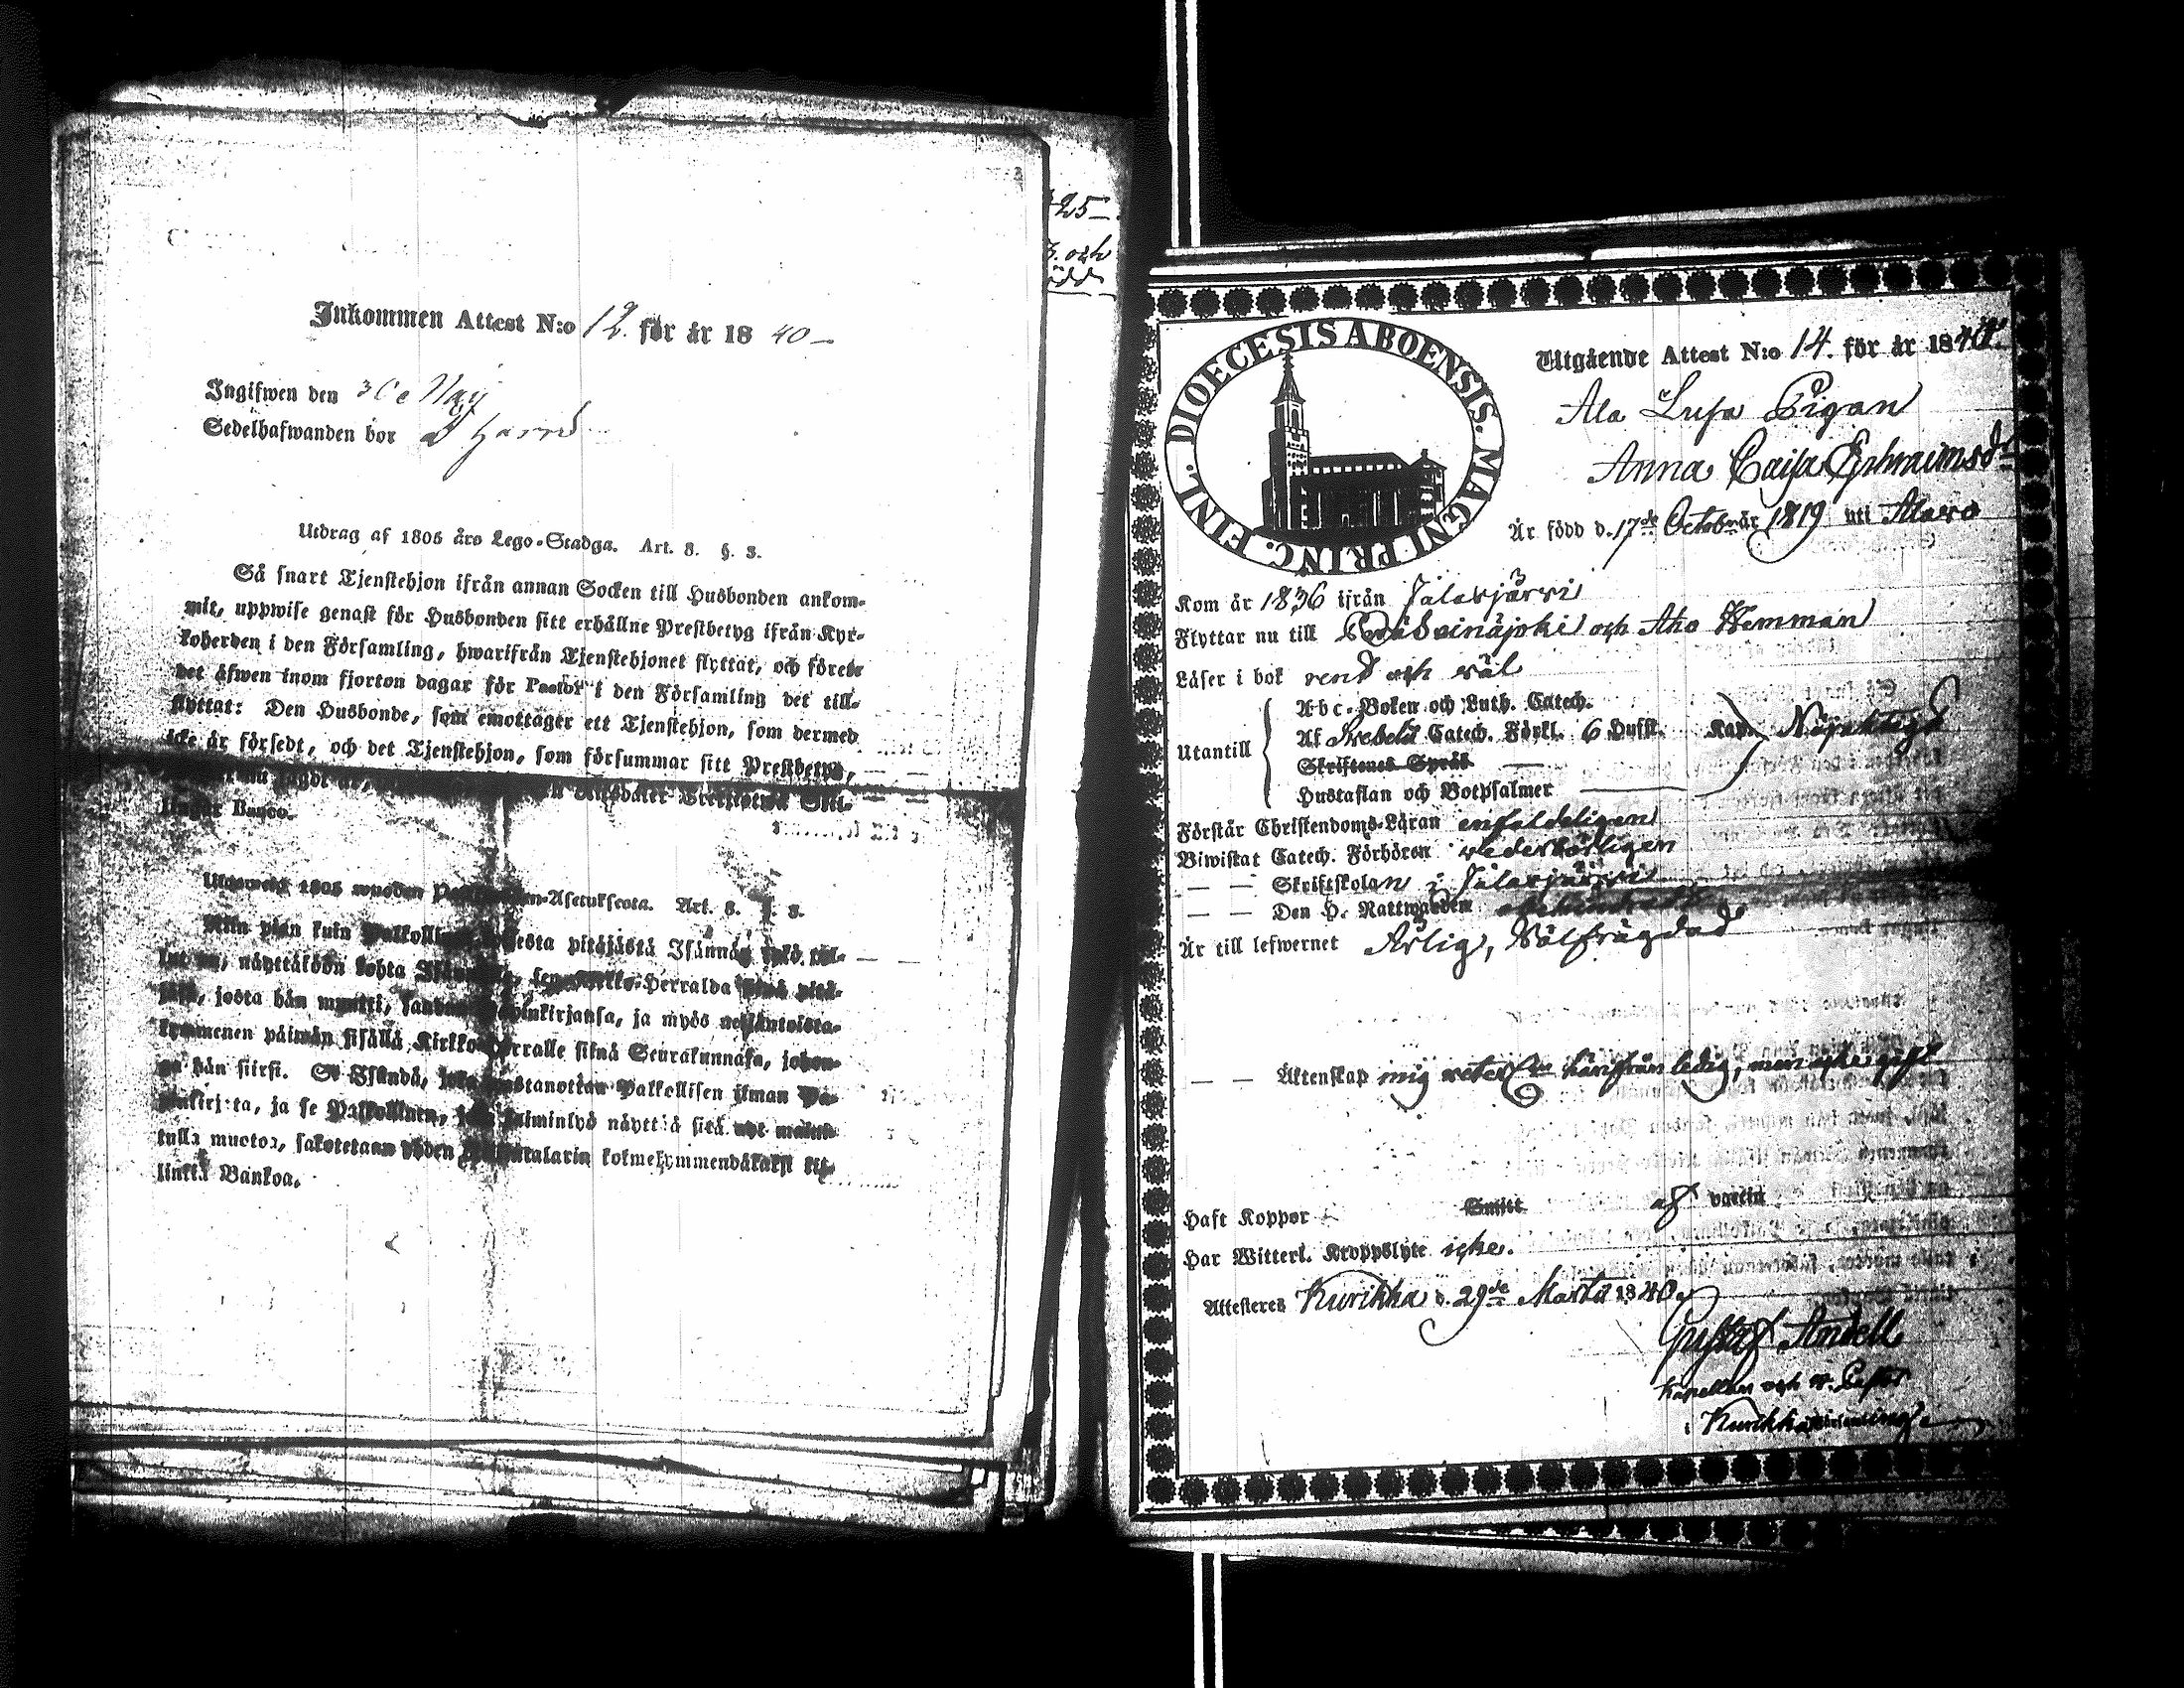 25-
och
född
Inkommen Attest N:o 12. för år 1840-
Ingifwen den 30e Maij
Sedelhafwanden bor å
Utdrag af 1805 års Lego-Stadga. Art. 8. §. 3.
Så snart Tjenstehjon ifrån annan Socken till Husbonden ankom-
mit, uppwise genast för Husbonden sitt erhållne Prestbetyg ifrån Kyr-
koherden i den Församling, hwarifrån Tjenstehjonet flyttat, och förete
det äfwen inom fjorton dagar för Pastor i den Församling det till-
flyttat: Den Husbonde, som emottager ett Tjenstehjon, som dermed
icke är försedt, och det Tjenstehjon, som försummar sitt Prestbetyg,
nu sagdt är, Riksdaler
Banco.
1805 wuoden Asetuksesta. Art. 8. §. 3.
Niin pian kuin pitäjästä Isännän tykö tul-
lut on, näyttäköön kohta Herralda siinä pitä-
jäsä, josta hän muutti, ja myös neljäntoista-
kymmenen päiwän sisällä Kirkko-Herralle siinä Seurakunnasa, johon-
ga hän siirsi. Se Isändä, joka wastanottaa Palkollisen ilman Pa-
pinkirjata, ja se Palkollinen, joka laiminlyö näyttää sitä nyt maini-
tulla muotoa, sakotetaan kolmekymmendäkaksi kil-
linkiä Bankoa.
DIOECESIS ABOENSIS. MAGNI PRINC. FINL.
Utgående Attest N:o 14. för år 1840.
Ala Lusa Pigan
Anna Caisa Ephraimsdr
Är född d. 17de Octobr år 1819 uti Alavo
Kom år 1836 ifrån Jalasjärvi
Flyttar nu till Seinäjoki och Aho Hemman
Läser i bok rent och väl
Utantill
Abc-Boken och Luth. Catech.
Af Svebelii Catech. Förkl. 6 Hufst. Kap. Nöjaktigt
Skriftenes Språk
Hustaflan och Botpsalmer
Förstår Christendoms-Läran enfaldeligen
Biwistat Catech. Förhören vederbörligen
— — Skriftskolan i Jalasjärvi
— — Den H. Nattwarden
Är till lefwernet Ärlig, Välfrägdad
— — Äktenskap mig veterl. härifrån ledig, men icke gift
Haft Koppor Smitt af vaccin
Har Witterl. Kroppslyte icke.
Attesteres Kurikka d. 29de Martii 1840.
Gustaf Andell
Kapellan och v. Pastor
i Kurikka